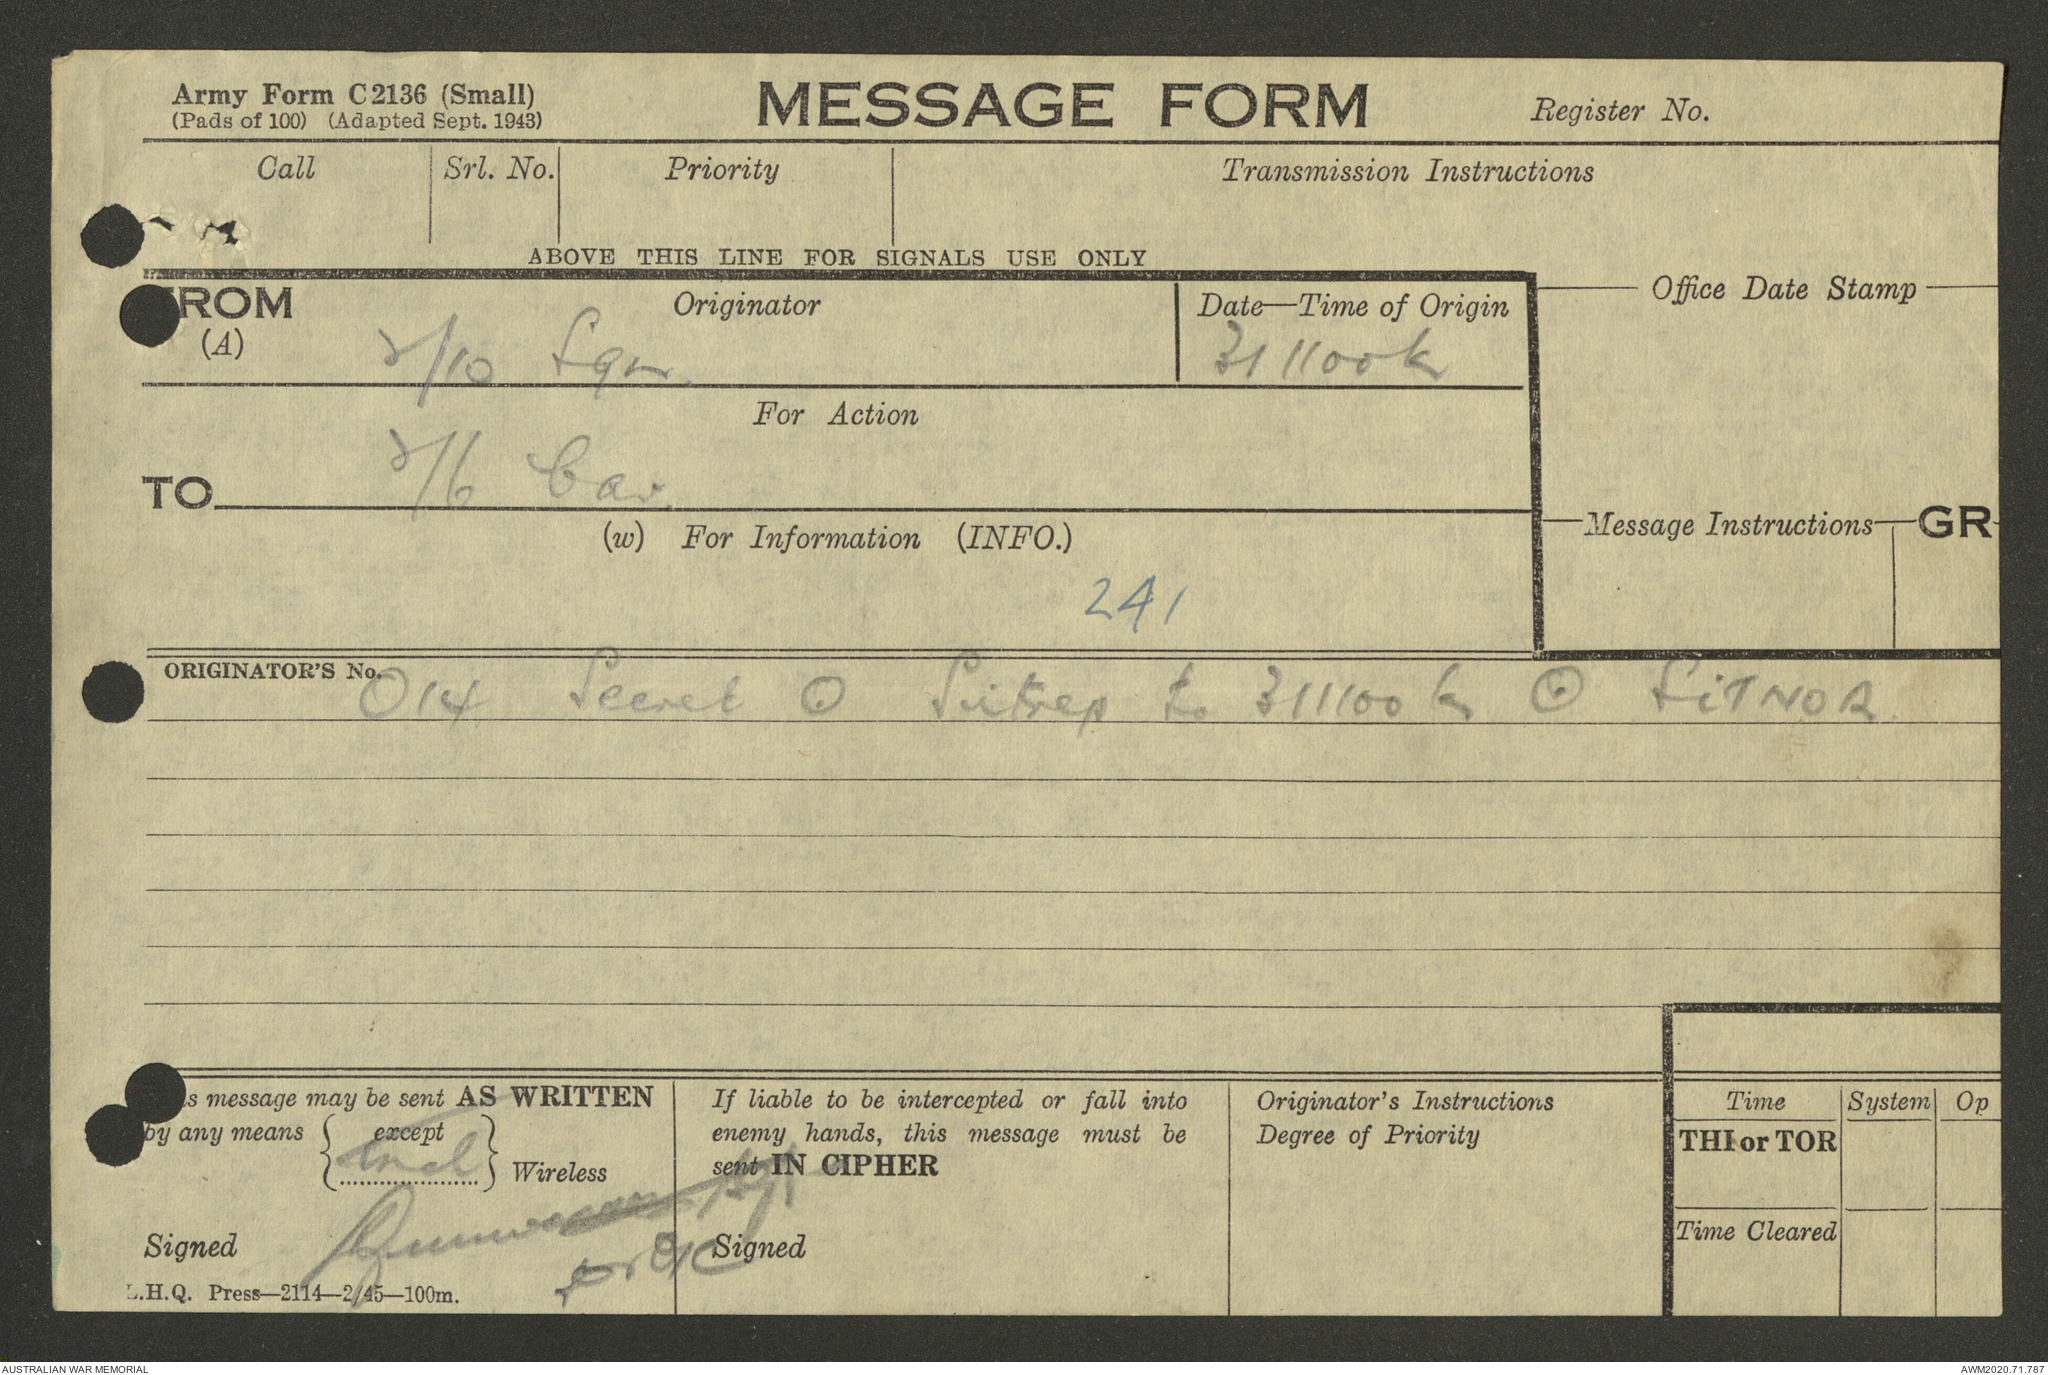 Army Form C2136 (Small)
(Pads of 100) (Adapted Sept. 1943)
MESSAGE FORM
Register No.
Call
Srl. No.
Priority
Transmission Instructions
ABOVE THIS LINE FOR SIGNALS USE ONLY
ROM
(A)
Originator
2/10 Sqn.
Date—Time of Origin
311100k
Office Date Stamp
For Action
TO
2/6 Cav.
(w) For Information (INFO.)
241
Message Instructions
GR
ORIGINATOR'S No.
O14 Secret ⊙ Sitrep to 311100k ⊙ SITNOR
s message may be sent AS WRITTEN
by any means { except
incl } Wireless
Signed
for OC
L.H.Q. Press—2114—2/45—100m.
If liable to be intercepted or fall into
enemy hands, this message must be
sent IN CIPHER
Signed
Originator's Instructions
Degree of Priority
Time
System
Op
THI or TOR
Time Cleared
AUSTRALIAN WAR MEMORIAL
AWM2020.71.787